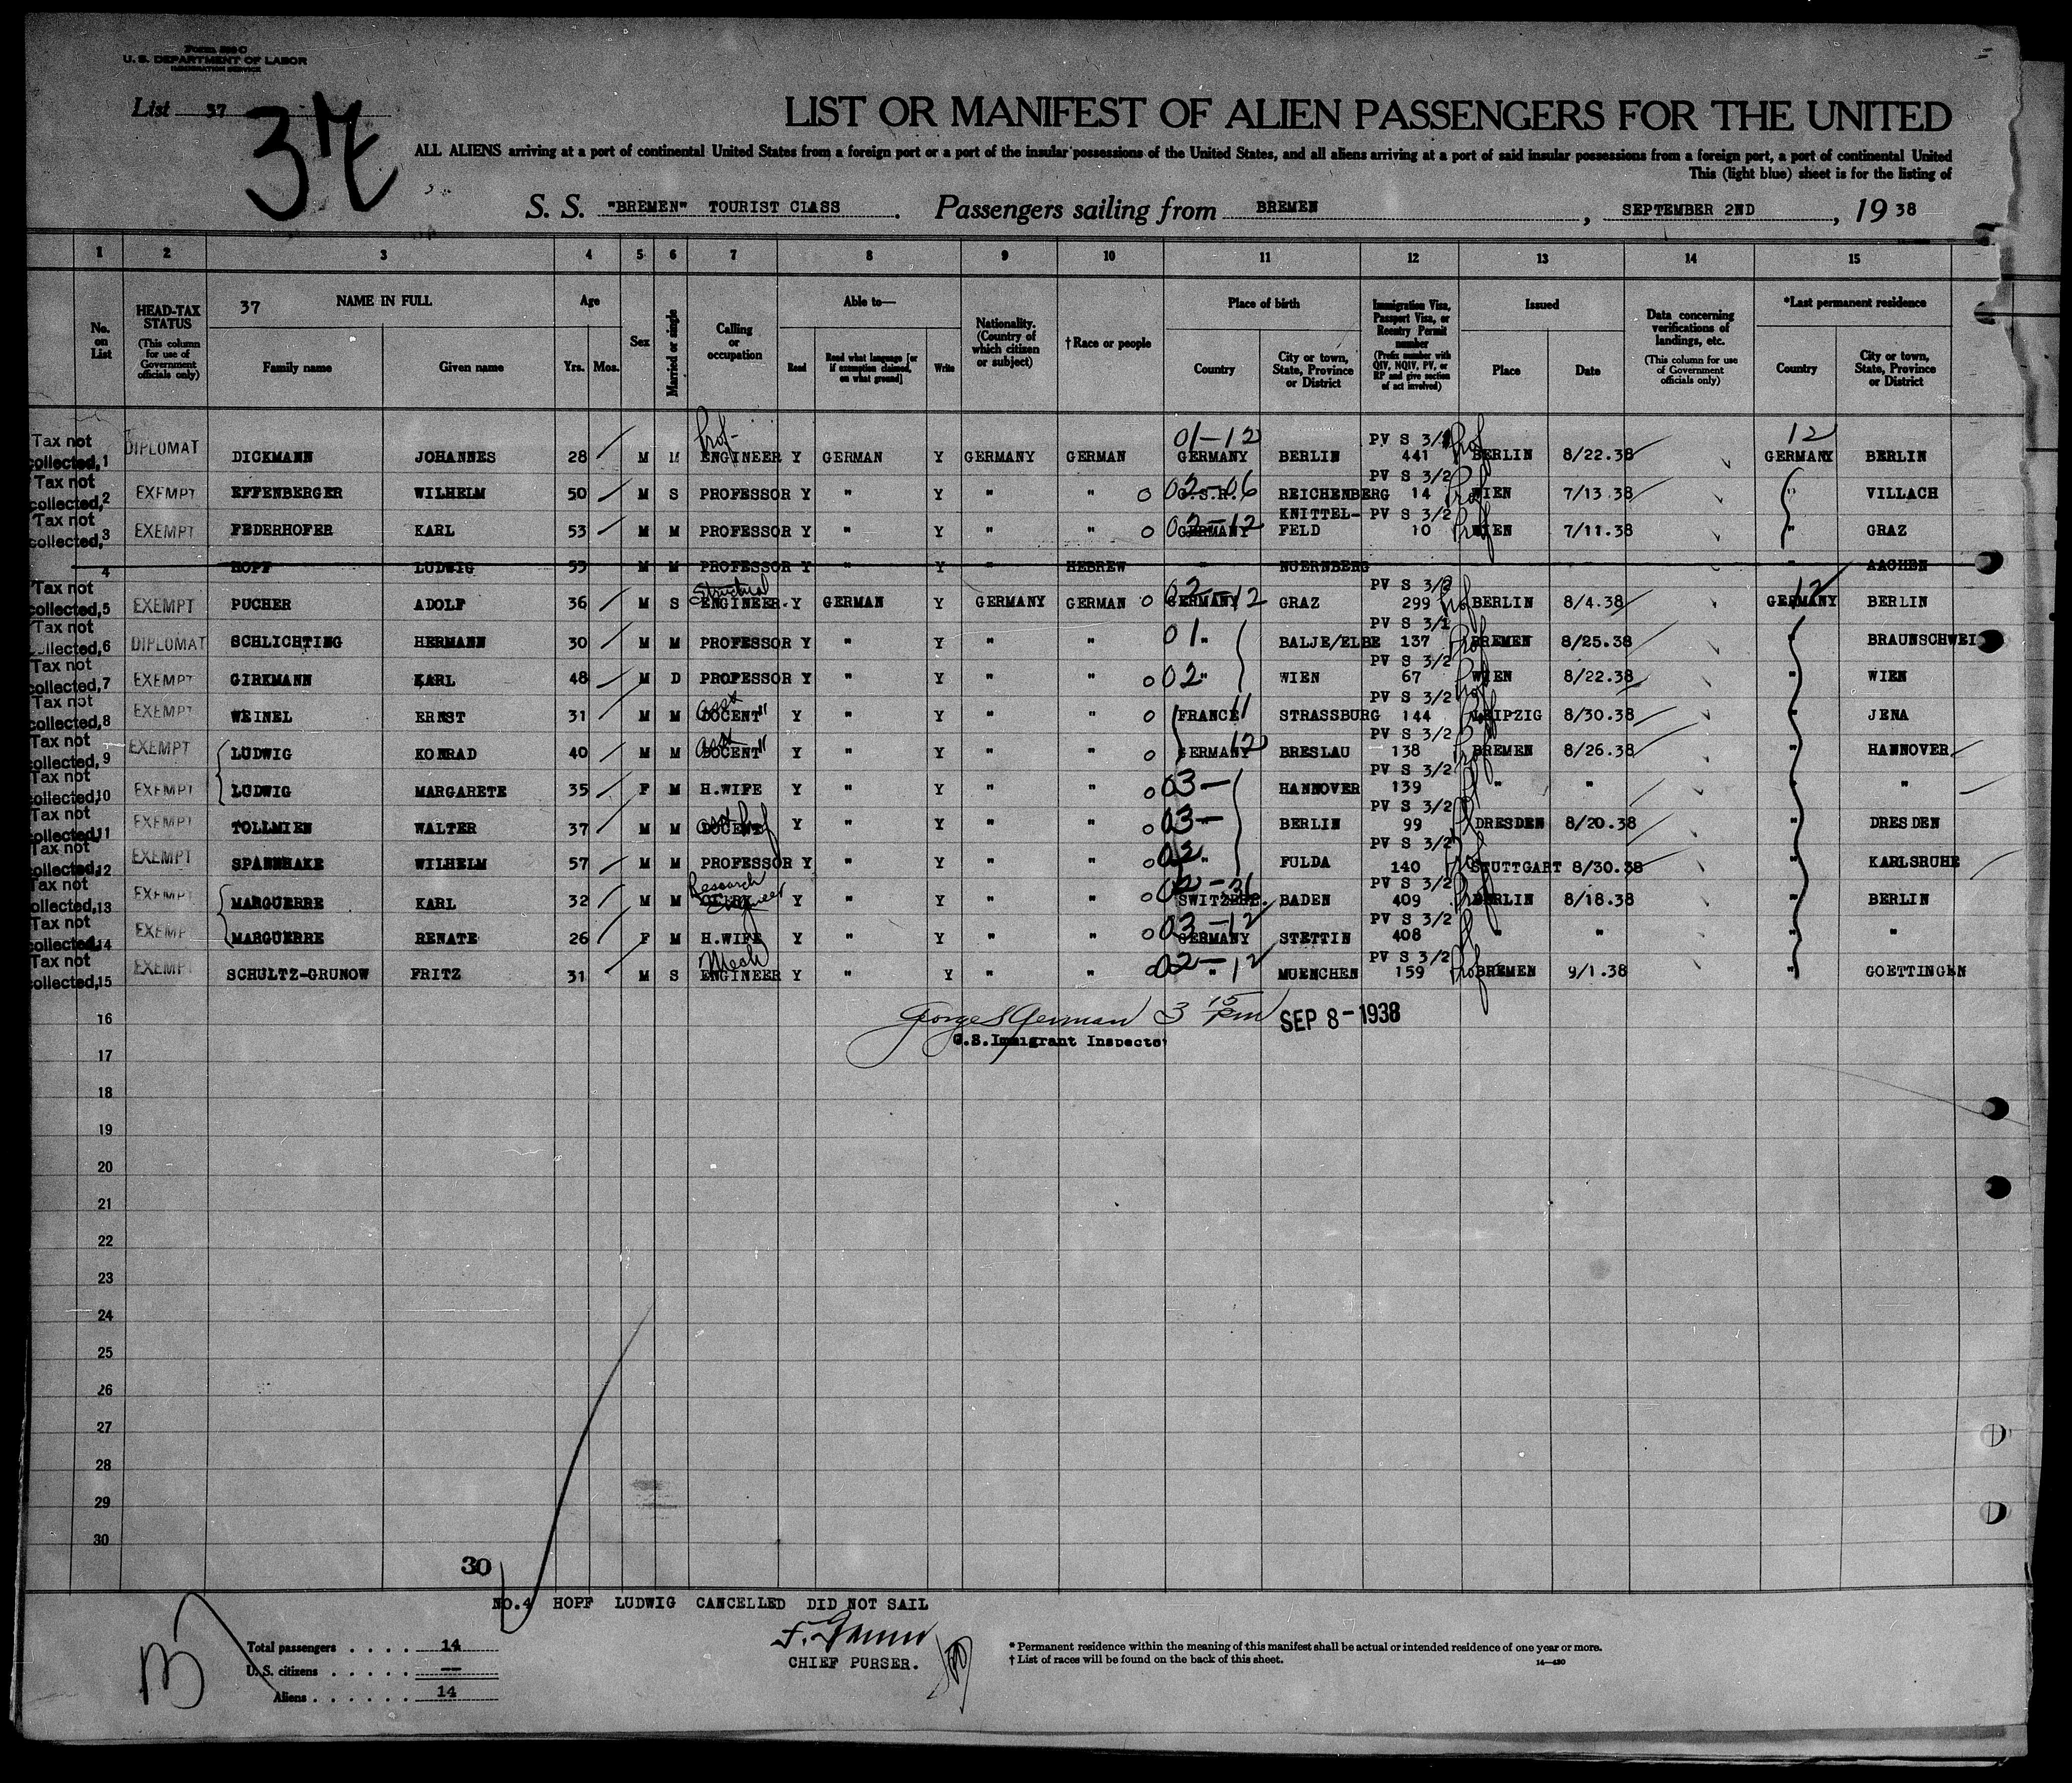 Form 500 C
U. S. DEPARTMENT OF LABOR
IMMIGRATION SERVICE
List 37
37
LIST OR MANIFEST OF ALIEN PASSENGERS FOR THE UNITED
ALL ALIENS arriving at a port of continental United States from a foreign port or a port of the insular possessions of the United States, and all aliens arriving at a port of said insular possessions from a foreign port, a port of continental United
This (light blue) sheet is for the listing of
S. S. "BREMEN" TOURIST CLASS . Passengers sailing from BREMEN , SEPTEMBER 2ND , 19 38
1 2 3 4 5 6 7 8 9 10 11 12 13 14 15
No. on List
HEAD-TAX STATUS (This column for use of Government officials only)
37 NAME IN FULL
Family name Given name
Age
Yrs. Mos.
Sex
Married or single
Calling or occupation
Able to—
Read Read what language [or if exemption claimed, on what ground] Write
Nationality. (Country of which citizen or subject)
†Race or people
Place of birth
Country City or town, State, Province or District
Immigration Visa, Passport Visa, or Reentry Permit number (Prefix number with QIV, NQIV, PV, or RP and give section of act involved)
Issued
Place Date
Data concerning verifications of landings, etc. (This column for use of Government officials only)
*Last permanent residence
Country City or town, State, Province or District
Tax not collected, 1 DIPLOMAT DICKMANN JOHANNES 28 M M Prof- ENGINEER Y GERMAN Y GERMANY GERMAN 01-12 GERMANY BERLIN PV S 3/1 441 Prof BERLIN 8/22.38 12 GERMANY BERLIN
Tax not collected, 2 EXEMPT EFFENBERGER WILHELM 50 M S PROFESSOR Y " Y " " 0 02-06 C.S.R. REICHENBERG PV S 3/2 14 Prof WIEN 7/13 38 " VILLACH
Tax not collected, 3 EXEMPT FEDERHOFER KARL 53 M M PROFESSOR Y " Y " " 0 02-12 GERMANY KNITTEL-FELD PV S 3/2 10 Prof WIEN 7/11.38 " GRAZ
4 HOPF LUDWIG 55 M M PROFESSOR Y " Y " HEBREW " NUERNBERG " AACHEN
Tax not collected, 5 EXEMPT PUCHER ADOLF 36 M S Structural ENGINEER. Y GERMAN Y GERMANY GERMAN 0 02-12 GERMANY GRAZ PV S 3/2 299 Prof BERLIN 8/4.38 12 GERMANY BERLIN
Tax not collected, 6 DIPLOMAT SCHLICHTING HERMANN 30 M M PROFESSOR Y " Y " " 01 " BALJE/ELBE PV S 3/1 137 Prof BREMEN 8/25.38 " BRAUNSCHWEI
Tax not collected, 7 EXEMPT GIRKMANN KARL 48 M D PROFESSOR Y " Y " " 0 02 " WIEN PV S 3/2 67 Prof WIEN 8/22.38 " WIEN
Tax not collected, 8 EXEMPT WEINEL ERNST 31 M M DOCENT" Y " Y " " 0 FRANCE 11 STRASSBURG PV S 3/2 144 Prof LEIPZIG 8/30.38 " JENA
Tax not collected, 9 EXEMPT LUDWIG KONRAD 40 M M DOCENT" Y " Y " " 0 GERMANY 12 BRESLAU PV S 3/2 138 Prof BREMEN 8/26.38 " HANNOVER
Tax not collected, 10 EXEMPT LUDWIG MARGARETE 35 F M H.WIFE Y " Y " " 0 03- HANNOVER PV S 3/2 139 " " " "
Tax not collected, 11 EXEMPT TOLLMIEN WALTER 37 M M DOCENT Prof Y " Y " " 0 03- " BERLIN PV S 3/2 99 DRESDEN 8/20.38 " DRESDEN
Tax not collected, 12 EXEMPT SPANNHAKE WILHELM 57 M M PROFESSOR Y " Y " " 0 02 " FULDA PV S 3/2 140 Prof STUTTGART 8/30.38 " KARLSRUHE
Tax not collected, 13 EXEMPT MARGUERRE KARL 32 M M Research Engineer Y " Y " " 0 02-31 SWITZERL. BADEN PV S 3/2 409 Prof BERLIN 8/18.38 " BERLIN
Tax not collected, 14 EXEMP MARGUERRE RENATE 26 F M H.WIFE Y " Y " " 0 03-12 GERMANY STETTIN PV S 3/2 408 " " " "
Tax not collected, 15 EXEMPT SCHULTZ-GRUNOW FRITZ 31 M S Mech ENGINEER Y " Y " " 0 02-12 " MUENCHEN PV S 3/2 159 Prof BREMEN 9/1.38 " GOETTINGEN
George S German 3 15 pm SEP 8-1938
16 U.S.Immigrant Inspector
17
18
19
20
21
22
23
24
25
26
27
28
29
30
30
NO.4 HOPF LUDWIG CANCELLED DID NOT SAIL
CHIEF PURSER.
Total passengers . . . . 14
U. S. citizens . . . . . . —
Aliens . . . . . . 14
* Permanent residence within the meaning of this manifest shall be actual or intended residence of one year or more.
† List of races will be found on the back of this sheet.
14—430